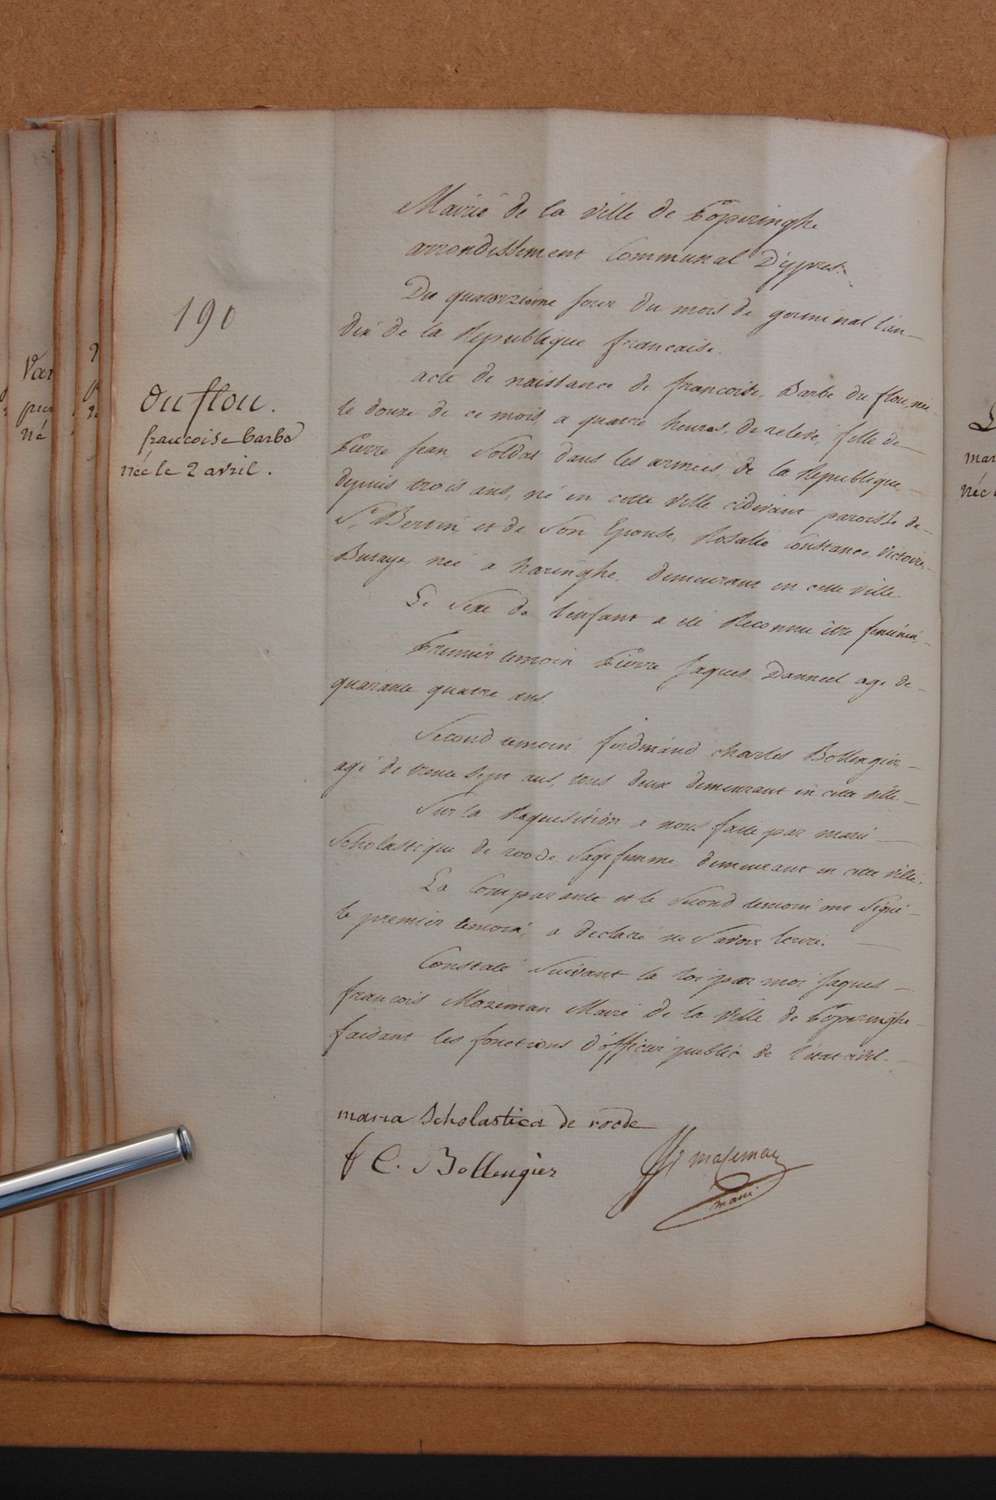 190
Duflou.
francoise barbe
née le 2 avril.
Mairie de la ville de Poperinghe
arrondissement Communal D'ypres.
Du quatorzieme jour du mois de germinal l'an
dix de la Republique francaise.
acte de naissance de francoise Barbe du flou, née
le douze de ce mois, a quatre heures de relevé, fille de
Pierre Jean Soldat dans les armées de la Republique
depuis trois ans, né en cette ville cidevant paroisse de
St Bertin et de Son Epouse Rosalie Constance Victoire
Butaye née a haringhe, demeurant en cette ville.
Le Sexe de l'enfant a été Reconnu être feminin
Premier temoin Pierre Jaques Danneel agé de
quarante quatre ans
Second temoin ferdinand charles Bollengier
agé de trente sept ans, tous deux demeurant en cette ville.
Sur la Requisition a nous faite par marie
Scholastique de roode Sagefemme demeurant en cette ville.
La Comparante et le Second temoin ont Signé
le premier temoin a declaré ne Savoir ecrire.
Constaté Suivant la loi par moi Jaques
francois Mazeman Maire de la Ville de Poperinghe
faisant les fonctions d'officier public de l'état civil.
maria Scholastica de roode
f C. Bollengier
mazeman
maire
Van
né
mar
née